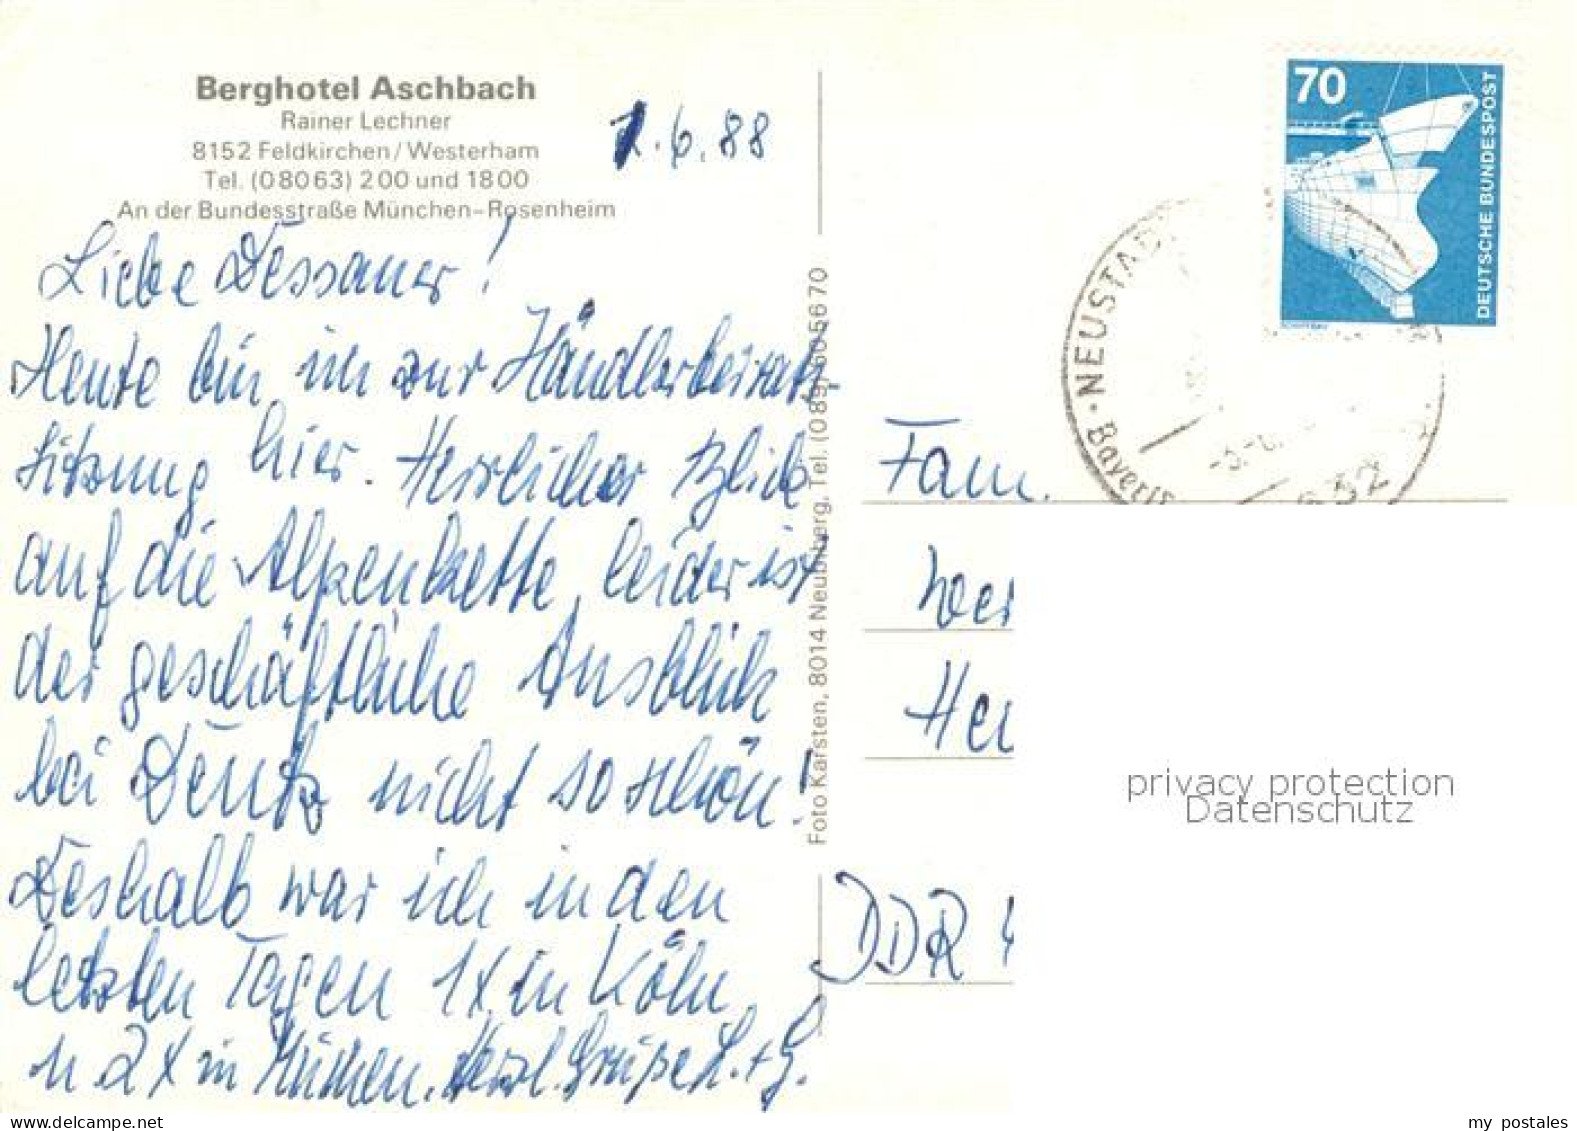 Berghotel Aschbach
Rainer Lechner
8152 Feldkirchen/Westerham
Tel. (08063) 200 und 1800
An der Bundesstraße München-Rosenheim
1.6.88
Liebe Dessauer!
Heute bin ich zur Händlerbeirats-
sitzung hier. Herrlicher Blick
auf die Alpenkette, leider ist
der geschäftliche Ausblick
bei Deutz nicht so schön!
Deshalb war ich in den
letzten Tagen 1x in Köln
u 2x in München. Herzl. Grüße L. + G.
Foto Karsten, 8014 Neubiberg, Tel. (089) 6056 70
70
DEUTSCHE BUNDESPOST
NEUSTADT
Bayern
Fam.
Wer
Her
DDR
privacy protection
Datenschutz
my postales